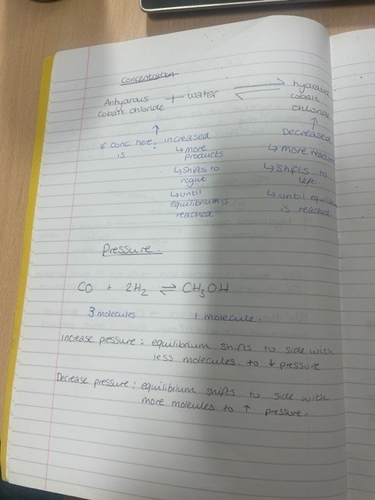 Concentration
Anhydrous + water ⇌ hydrated
cobalt chloride cobalt
chloride
↑ ↑
if conc here: increased Decreased
is ↳ more ↳ more
products
↳ shifts to ↳ shifts to
right left
↳ until ↳ until
equilibrium is is reached
reached
Pressure.
CO + 2H₂ ⇌ CH₃OH
3 molecules 1 molecule.
Increase pressure: equilibrium shifts to side with
less molecules to ↓ pressure
Decrease pressure: equilibrium shifts to side with
more molecules to ↑ pressure.